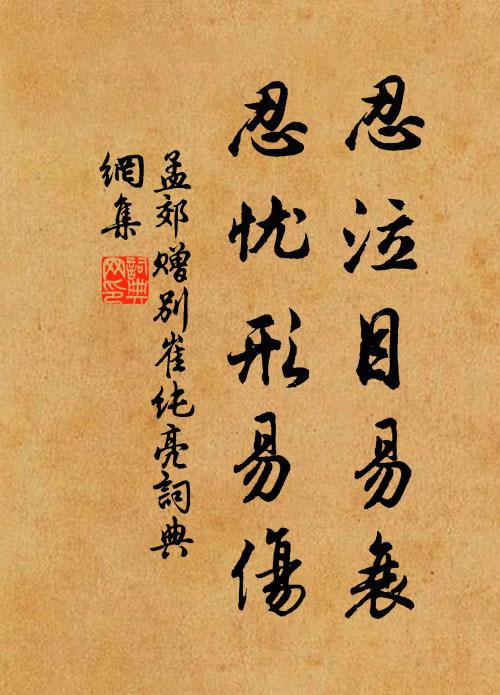 忍泣目易衰
忍忧形易傷
孟郊赠别崔纯亮詞典
網集
詞典
网印